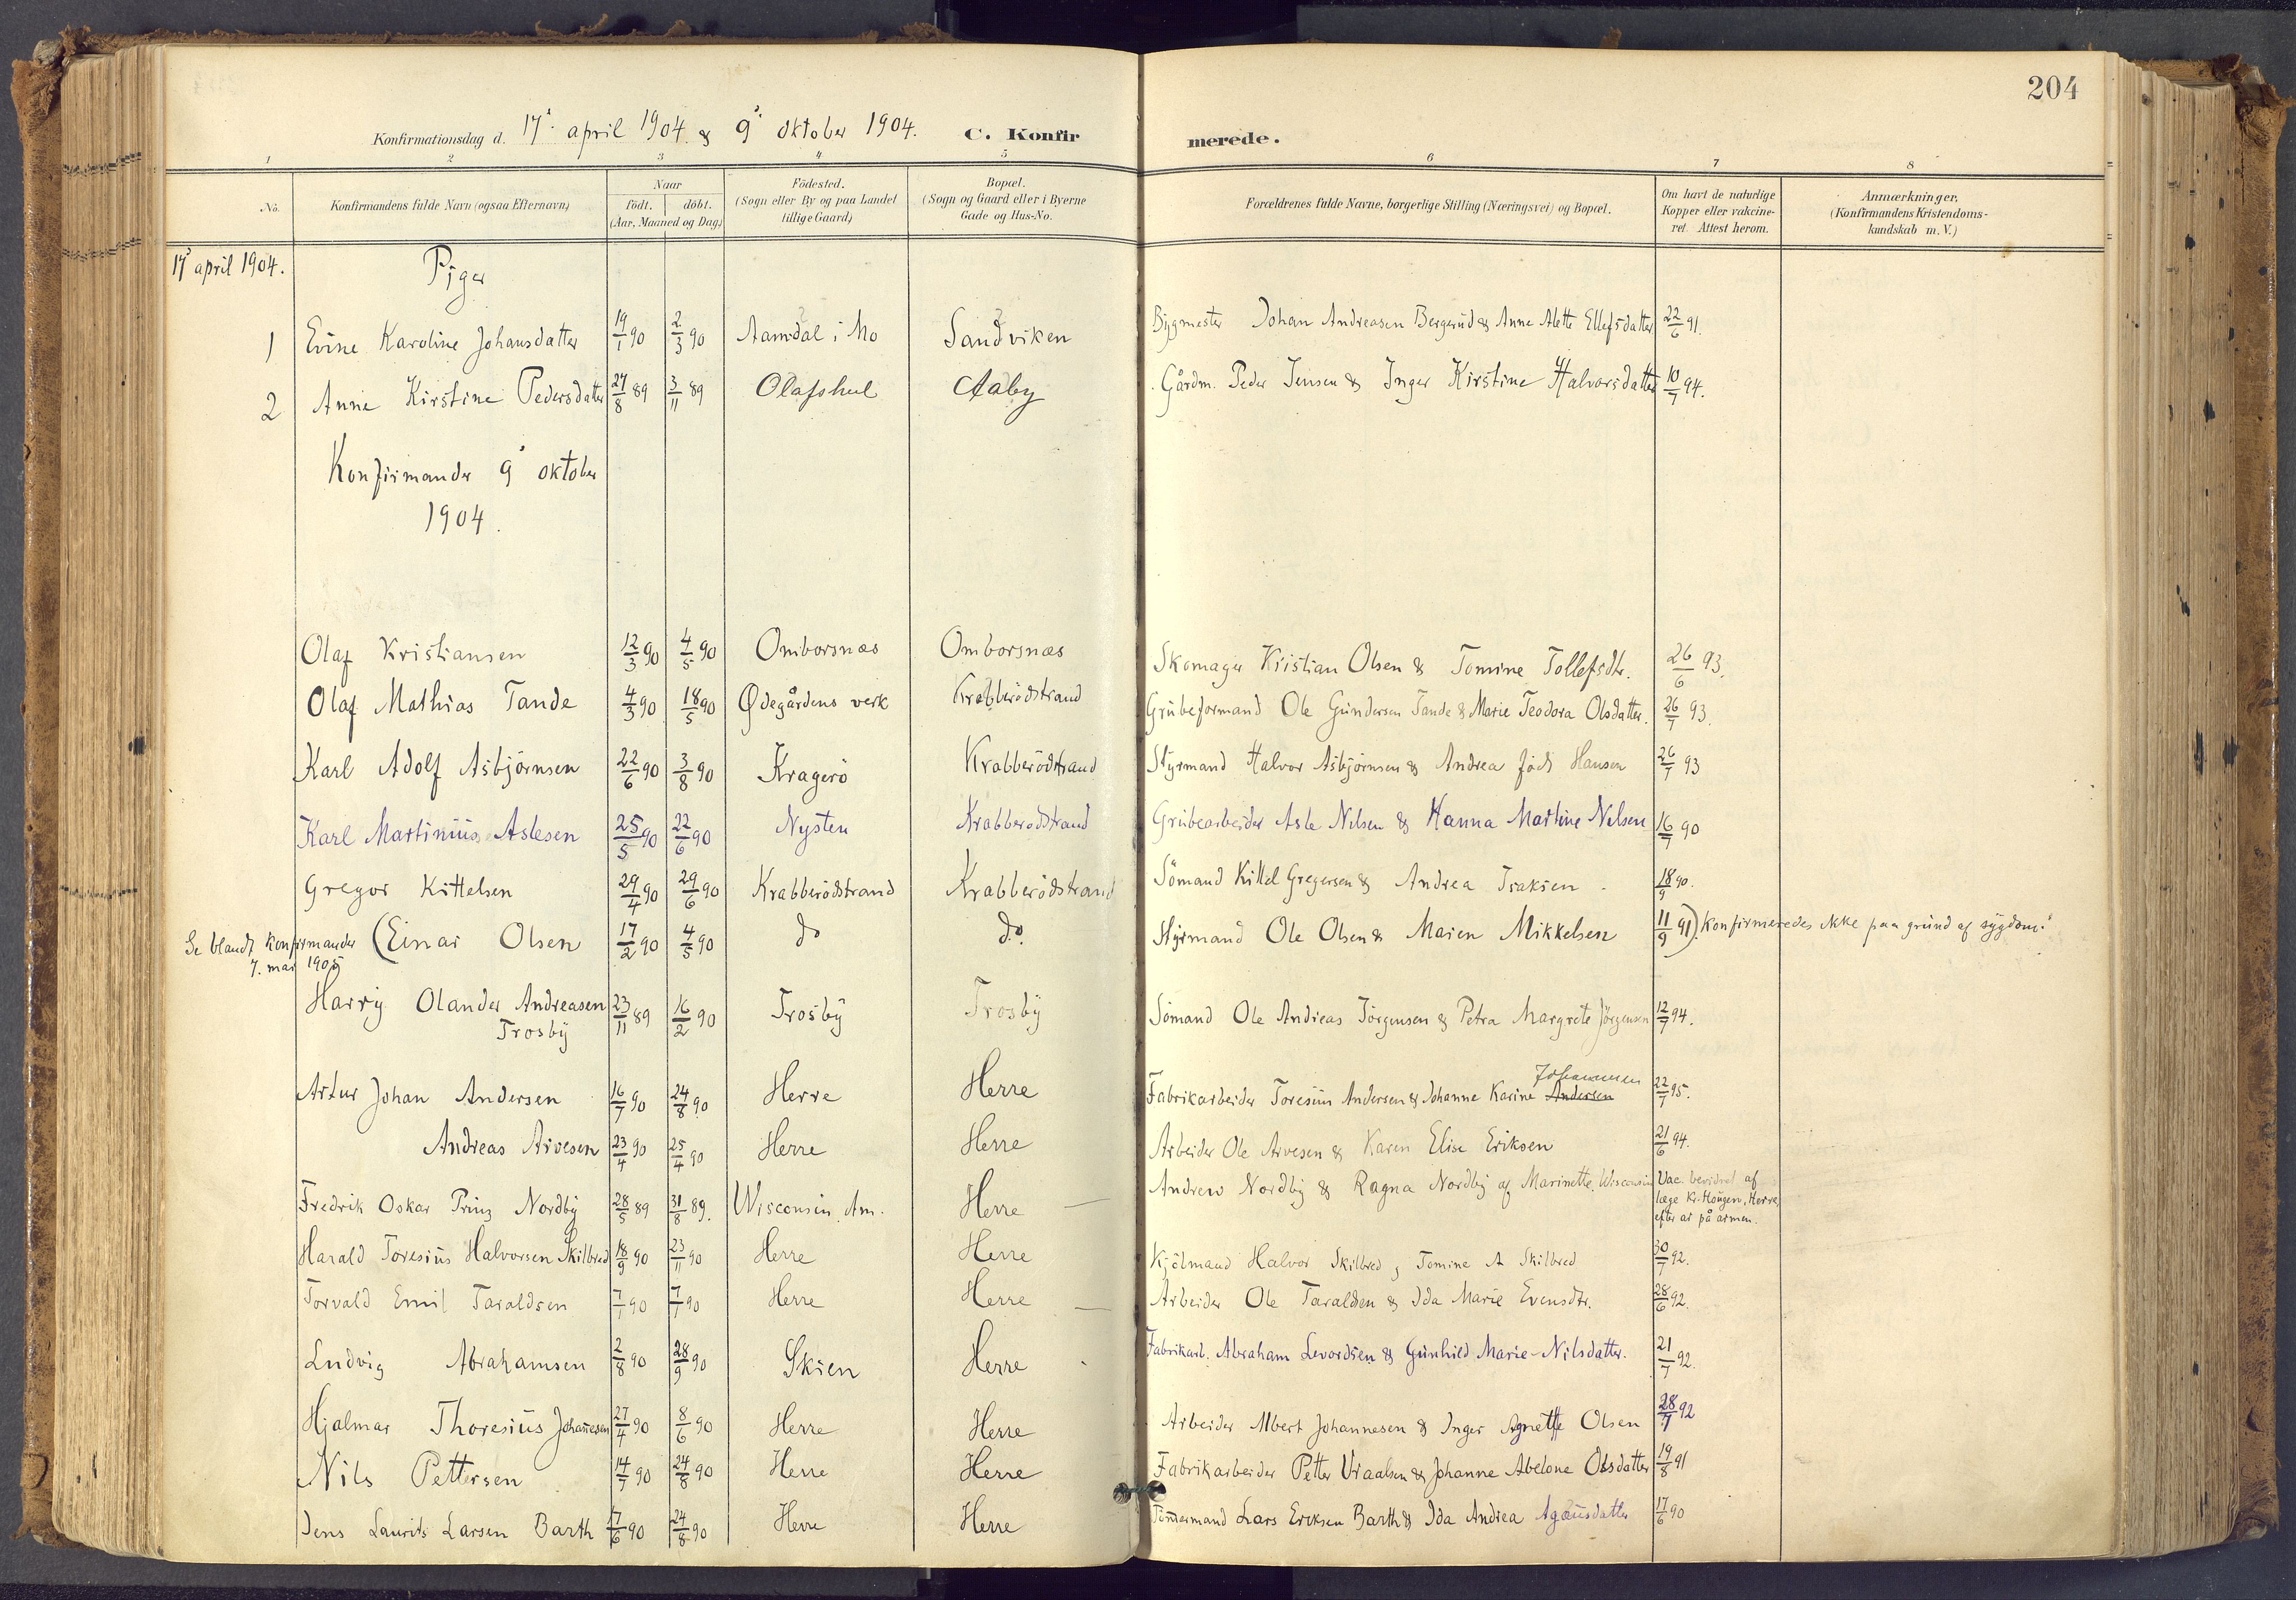 204
Konfirmationsdag d. 17' april 1904 & 9' oktober 1904. C. Konfirmerede.
1 2 3 4 5 6 7 8
No. Konfirmandens fulde Navn (ogsaa Efternavn) Naar födt. döbt. (Aar, Maaned og Dag) Födested. (Sogn eller By og paa Landet tillige Gaard) Bopæl. (Sogn og Gaard eller i Byerne Gade og Hus-No. Forældrenes fulde Navne, borgerlige Stilling (Næringsvei) og Bopæl. Om havt de naturlige Kopper eller vakcineret. Attest herom. Anmærkninger, (Konfirmandens Kristendomskundskab m. V.)
17' april 1904. Piger
1 Evine Karoline Johansdatter 19/1 90 2/3 90 Aamdal i Mo Sandviken Bygmester Johan Andreasen Bergerud & Anne Alette Ellefsdatter 22/6 91.
2 Anne Kirstine Pedersdatter 27/8 89 3/11 89 Olafshul Aaby Gårdm. Peder Jensen & Inger Kirstine Halvorsdatter 10/7 94.
Konfirmander 9' oktober
1904.
Olaf Kristiansen 12/3 90 4/5 90 Omborsnæs Omborsnæs Skomager Kristian Olsen & Tomine Tollefsdtr. 26/6 93.
Olaf Mathias Tande 4/3 90 18/5 90 Ødegårdens verk Krabberödstrand Grubeformand Ole Gundersen Tande & Marie Teodora Olsdatter. 26/7 93.
Karl Adolf Asbjörnsen 22/6 90 3/8 90 Kragerö Krabberödstrand Styrmand Halvor Asbjörnsen & Andrea födt Hansen 26/7 93
Karl Martinius Aslesen 25/5 90 22/6 90 Nysten Krabberödstrand Grubearbeider Asle Nilsen & Hanna Martine Nelsen 16/7 90
Gregor Kittelsen 29/4 90 29/6 90 Krabberödstrand Krabberödstrand Sömand Kittel Gregersen & Andrea Isaksen 18/9 90.
Se blandt konfirmander 7. mai 1905 (Einar Olsen 17/2 90 4/5 90 do do. Styrmand Ole Olsen & Maren Mikkelsen 11/9 91). Konfirmeredes ikke paa grund af sygdom.
Harry Olander Andreasen Trosby 23/11 89 16/2 90 Trosby Trosby Sömand Ole Andreas Jörgensen & Petra Margrete Jörgensen 12/7 94.
Johannesen
Artur Johan Andersen 16/7 90 24/8 90 Herre Herre Fabrikarbeider Toresius Andersen & Johanne Karine Andersen 22/7 95.
Andreas Arvesen 23/4 90 25/4 90 Herre Herre Arbeider Ole Arvesen & Karen Elise Eriksen 21/6 94.
Fredrik Oskar Prinz Nordby 28/5 89 31/8 89. Wisconsin, Am. Herre Andrew Nordby & Ragna Nordby af Marinette, Wisconsin Vac. bevidnet af læge Kr. Hougen, Herre, efter ar på armen.
Harald Toresius Halvorsen Skilbred 18/9 90 23/11 90 Herre Herre Kjölmand Halvor Skilbred, Tomine A Skilbred 30/7 92.
Torvald Emil Taraldsen 7/1 90 7/7 90 Herre Herre Arbeider Ole Taraldsen & Ida Marie Evensdtr. 28/6 92.
Ludvig Abrahamsen 2/8 90 28/9 90 Skien Herre Fabrikarb. Abraham Levordsen & Gunhild Marie Nilsdatter. 21/7 92.
Hjalmar Thoresius Johannesen 27/4 90 8/6 90 Herre Herre Arbeider Albert Johannesen & Inger Agnette Olsen 28/7 92
Nils Pettersen 14/7 90 24/8 90 Herre Herre Fabrikarbeider Petter Vraalsen & Johanne Abelone Olsdatter 19/8 91
Jens Laurits Larsen Barth 17/6 90 24/8 90 Herre Herre Tömmermand Lars Eriksen Barth & Ida Andrea Agæusdatter 17/6 90